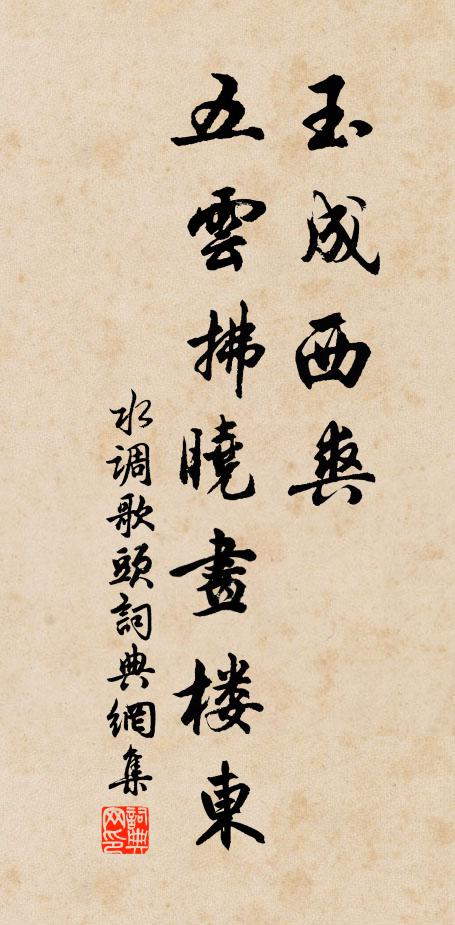 玉成西爽
五雲拂曉畫楼東
水调歌頭詞典網集
詞典網印